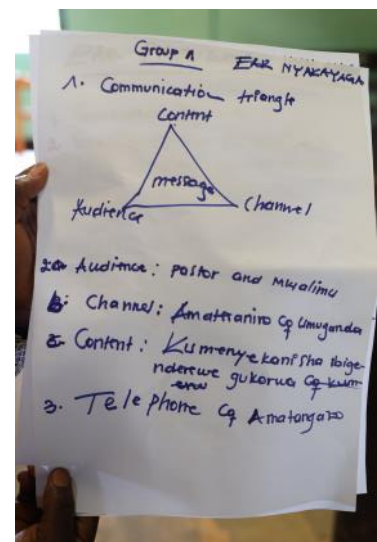 Group A   EAR NYAGAYAGA
1. Communication triangle
Content
message
Audience   Channel
2a Audience: pastor and Mwalimu
b: Channel: Amateraniro Cq Umuganda
c. Content: Kumenyekanisha ibige-
nderewe gukorwa
3. Telephone Cq Amatangazo